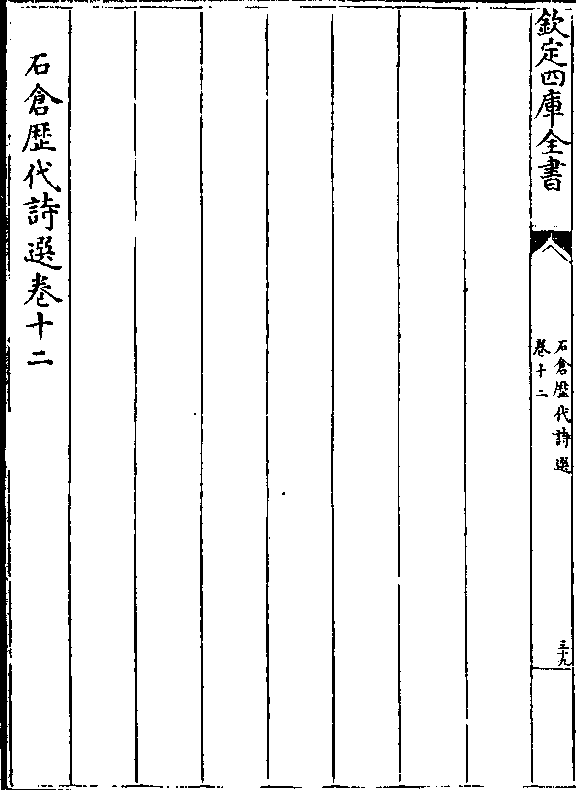 欽定四庫全書
石倉歷代詩選
卷十二
三十九
石倉歷代詩選卷十二